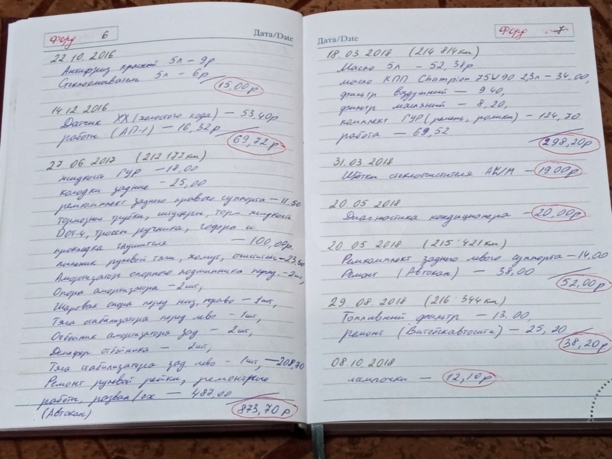 Форд 6 Дата/Date
22.10.2016
Антифриз красный 5л - 9р
Стеклоомыватель 5л - 6р
15,00р
14.12.2016
Датчик ХХ (холостого хода) - 53,40р
работы (АП-1) - 16,32р
69,72р
27.06.2017 (212 177км)
жидкость ГУР - 18,00
колодки задние - 25,00
ремкомплект заднего правого суппорта - 11,50
тормозные трубки, штуцера, торм жидкость
Dot-4, тросы ручника, гофра и
прокладка глушителя — 100,00р
рулевой тяги, хомут, очиститель - 23,40
Амортизатор опорного подшипника перед - 2шт,
Опора амортизатора - 2шт,
Шаровая опора перед низ, право - 1шт,
Тяга стабилизатора перед лево - 1шт,
Отбойник амортизатора зад - 2шт,
отбойника - 2шт,
Тяга стабилизатора зад лево - 1шт, - 208,30
Ремонт рулевой рейки, ремонтные
работы, развал/сх — 487,00
(Автокат)
873,70р
Дата/Date Форд 7
18.03.2018 (214 814км)
Масло 5л - 52,38р
масло КПП Champion 75W90 2,5л - 34,00,
фильтр воздушный - 9,40,
фильтр масляный - 8,20,
комплект ГУР (ремень, ролики) - 124,70
работа - 69,52
298,20р
31.03.2018
Щётки стеклоочистителя - 19,00р
20.05.2018
Диагностика кондиционера - 20,00р
20.05.2018 (215 421км)
Ремкомплект заднего левого суппорта - 14,00
Ремонт (Автокат) - 38,00
52,00р
29.08.2018 (216 344км)
Топливный фильтр - 13,00,
ремонт (Витебкавтосити) - 25,20
38,20р
08.10.2018
лампочки - 12,10р